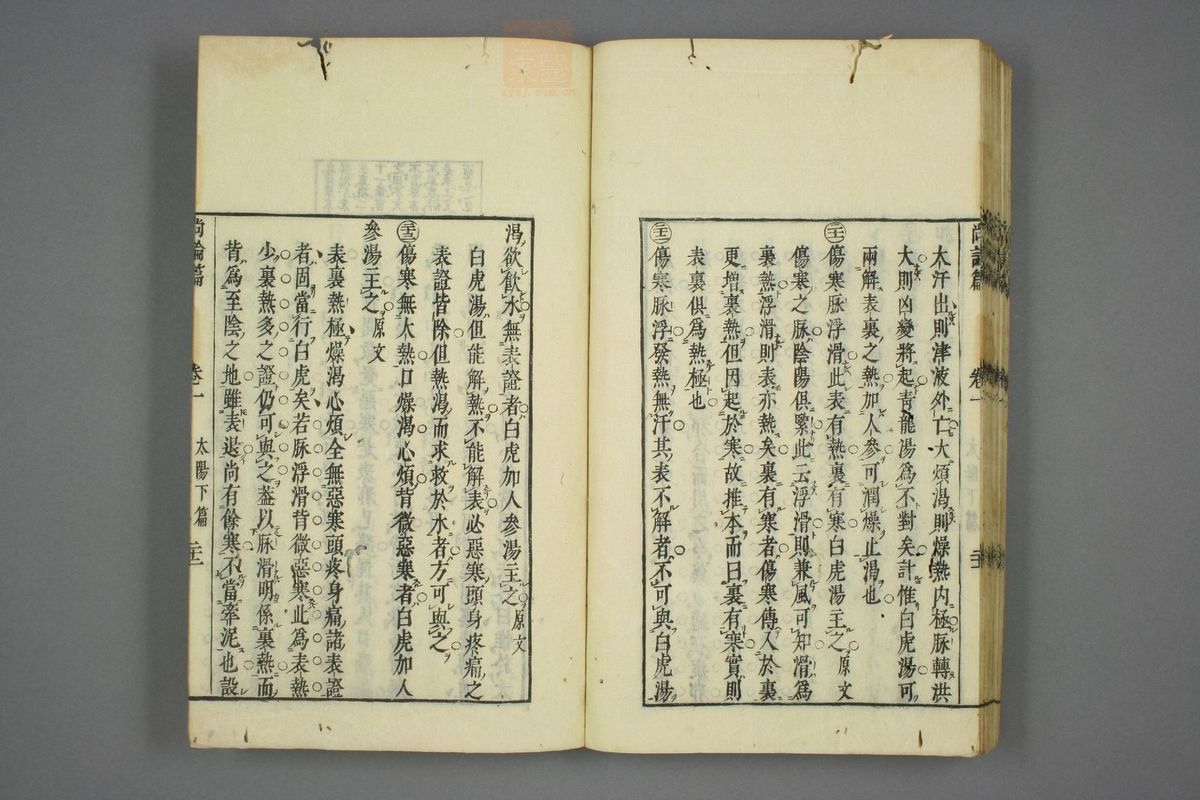 大汗出則津液外亡大煩渴則燥熱內極脉轉洪
大則凶變將起靑龍湯爲不對矣計惟白虎湯可
兩解表裏之熱加人參可潤燥止渴也
傷寒脉浮滑此表有熱裏有寒白虎湯主之原文
傷寒之脉陰陽俱緊此云浮滑則兼風可知滑爲
裏熱浮滑則表亦熱矣裏有寒者傷寒傳入於裏
更增裏熱但因起於寒故推本而曰裏有寒實則
表裏俱爲熱極也
傷寒脉浮發熱無汗其表不解者不可與白虎湯
渴欲飮水無表證者白虎加人參湯主之原文
白虎湯但能解熱不能解表必惡寒頭身疼痛之
表證皆除但熱渴而求救於水者方可與之
傷寒無大熱口燥渴心煩背微惡寒者白虎加人
參湯主之原文
表裏熱極燥渴心煩全無惡寒頭疼身痛諸表證
者固當行白虎矣若脉浮滑背微惡寒此爲表熱
少裏熱多之證仍可與之蓋以脉滑明係裏熱而
背爲至陰之地雖表退尚有餘寒不當牽泥也設
尚論篇 卷一 太陽下篇
zysj.com.cn